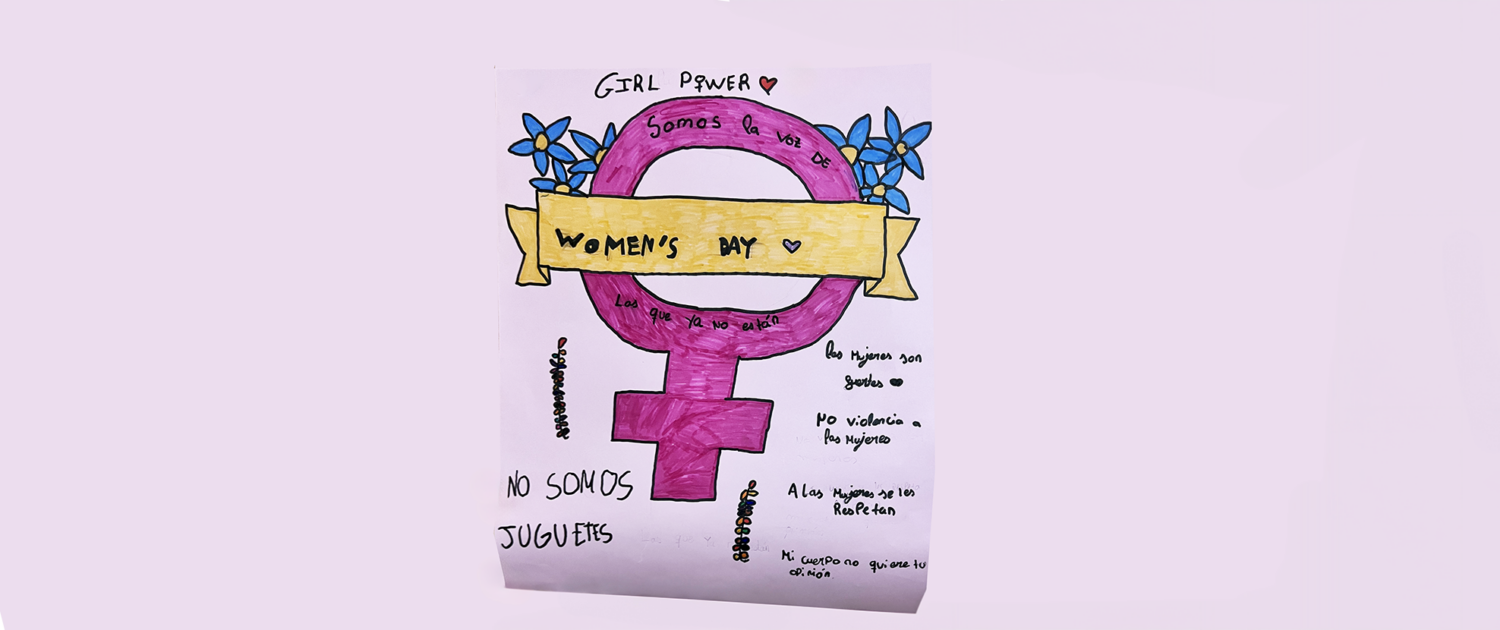 GIRL POWER
Somos la voz DE
WOMEN'S DAY
Las que ya no están
las Mujeres son
fuertes
NO violencia a
las Mujeres
NO SOMOS
JUGUETES
A las Mujeres se les
Respetan
Mi cuerpo no quiere tu
opinión